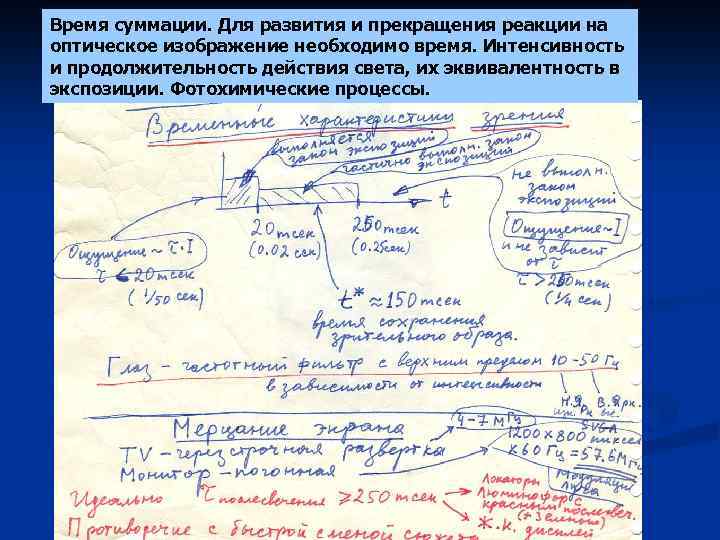 Время суммации. Для развития и прекращения реакции на
оптическое изображение необходимо время. Интенсивность
и продолжительность действия света, их эквивалентность в
экспозиции. Фотохимические процессы.
Временные характеристики зрения
выполняется
закон экспозиций
частично выполн. закон
экспозиций
не выполн.
закон
экспозиций
t
20 mсек
(0.02 сек)
250 mсек
(0.25 сек)
Ощущение ~ τ·I
τ < 20 mсек
(1/50 сек)
Ощущение ~ I
и не зависит
от τ
τ > 250 mсек
(1/4 сек)
t* ≈ 150 mсек
время сохранения
зрительного образа.
Глаз – частотный фильтр с верхним пределом 10 – 50 Гц
в зависимости от интенсивности
Н.Я. В.Ярк.
Мерцание экрана
4-7 мГц
SVGA
TV – черезстрочная развертка
1200 x 800 пиксел
x 60 Гц = 57.6 МГц
Монитор – погонная
Модуляция
луча
Идеально τ послесвечения ≥ 250 mсек
Локаторы
Люминофор с
красным послесвеч.
(+ зеленым)
Ж.к. дисплей
Противоречие с быстрой сменой сюжета